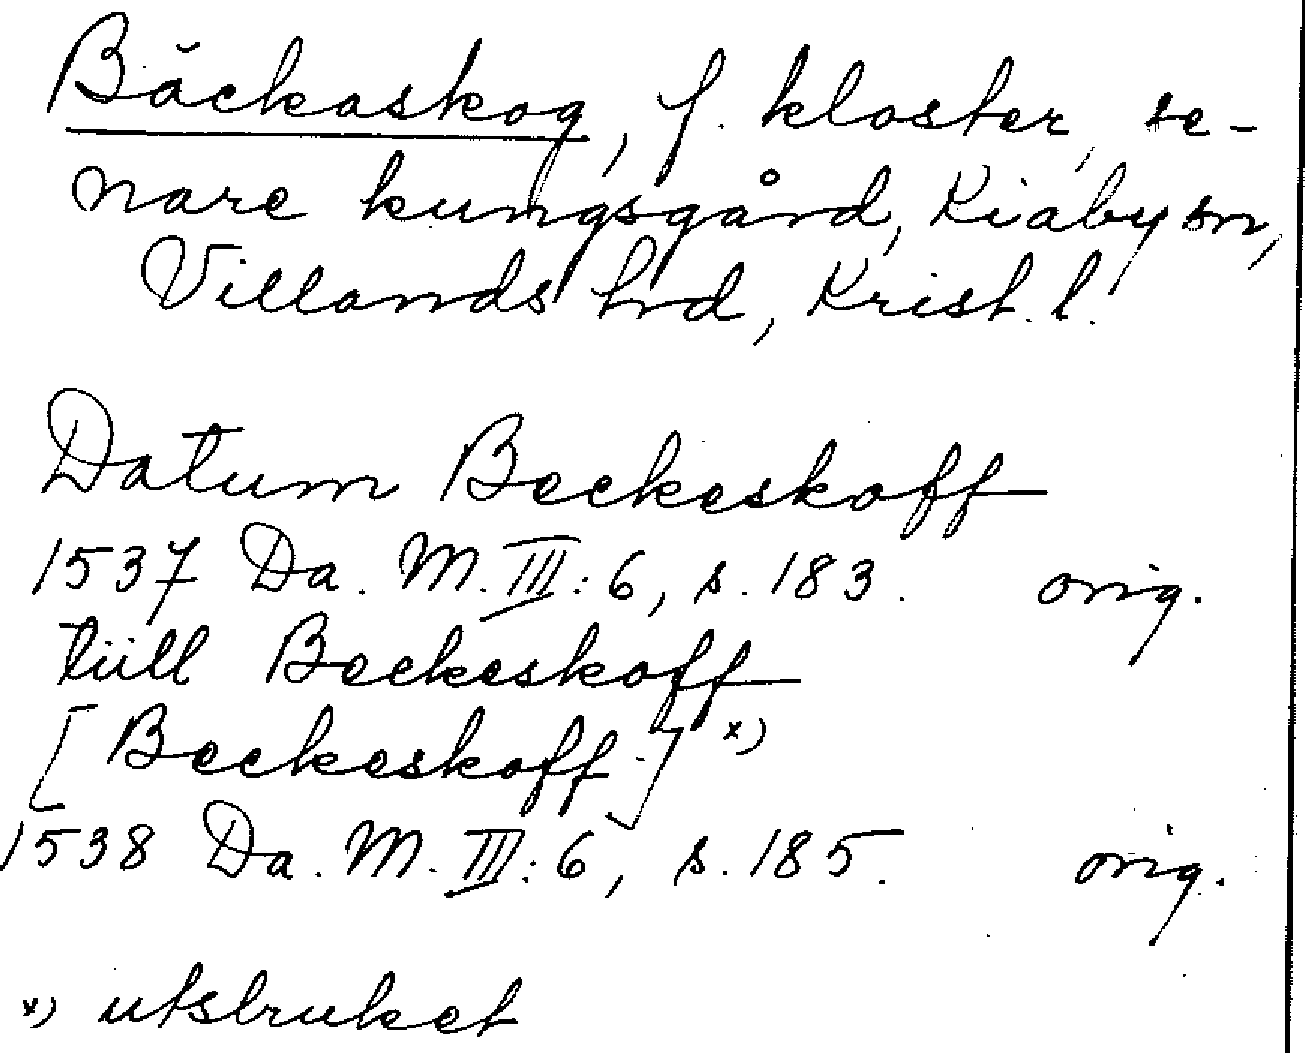 Bäckaskog, f. kloster, se-
nare kungsgård, Kiaby sn,
Villands hrd, Krist. l.
Datum Beckeskoff
1537 Da. M. III: 6, s. 183. orig.
tiill Beckeskoff
[Beckeskoff.] x)
1538 Da. M. III: 6, s. 185. orig.
x) utstruket